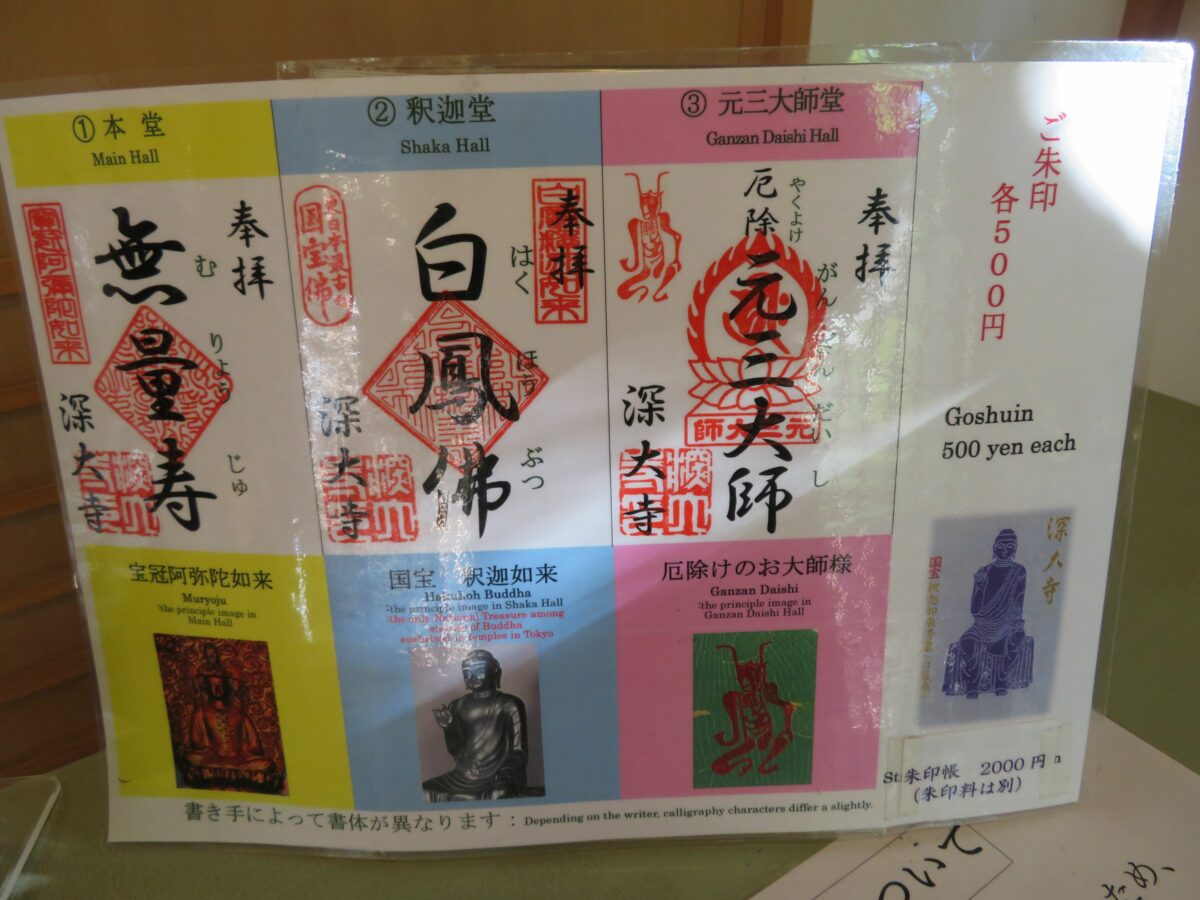 ①本堂
Main Hall
奉拝
無量寿
む
りょう
じゅ
深大寺
宝冠阿弥陀如来
Muryoju
:the principle image in
Main Hall
②釈迦堂
Shaka Hall
奉拝
国宝佛
白鳳佛
はく
ほう
ぶつ
深大寺
国宝 釈迦如来
Hakuhoh Buddha
:the principle image in Shaka Hall
:the only National Treasure among
statues of Buddha
enshrined in temples in Tokyo
③元三大師堂
Ganzan Daishi Hall
奉拝
厄除
やくよけ
元三大師
がんざんだいし
元三大師
深大寺
厄除けのお大師様
Ganzan Daishi
:the principle image in
Ganzan Daishi Hall
ご朱印
各500円
Goshuin
500 yen each
深大寺
国宝
朱印帳 2000円
(朱印料は別)
書き手によって書体が異なります：Depending on the writer, calligraphy characters differ a slightly.
ついて
ため、